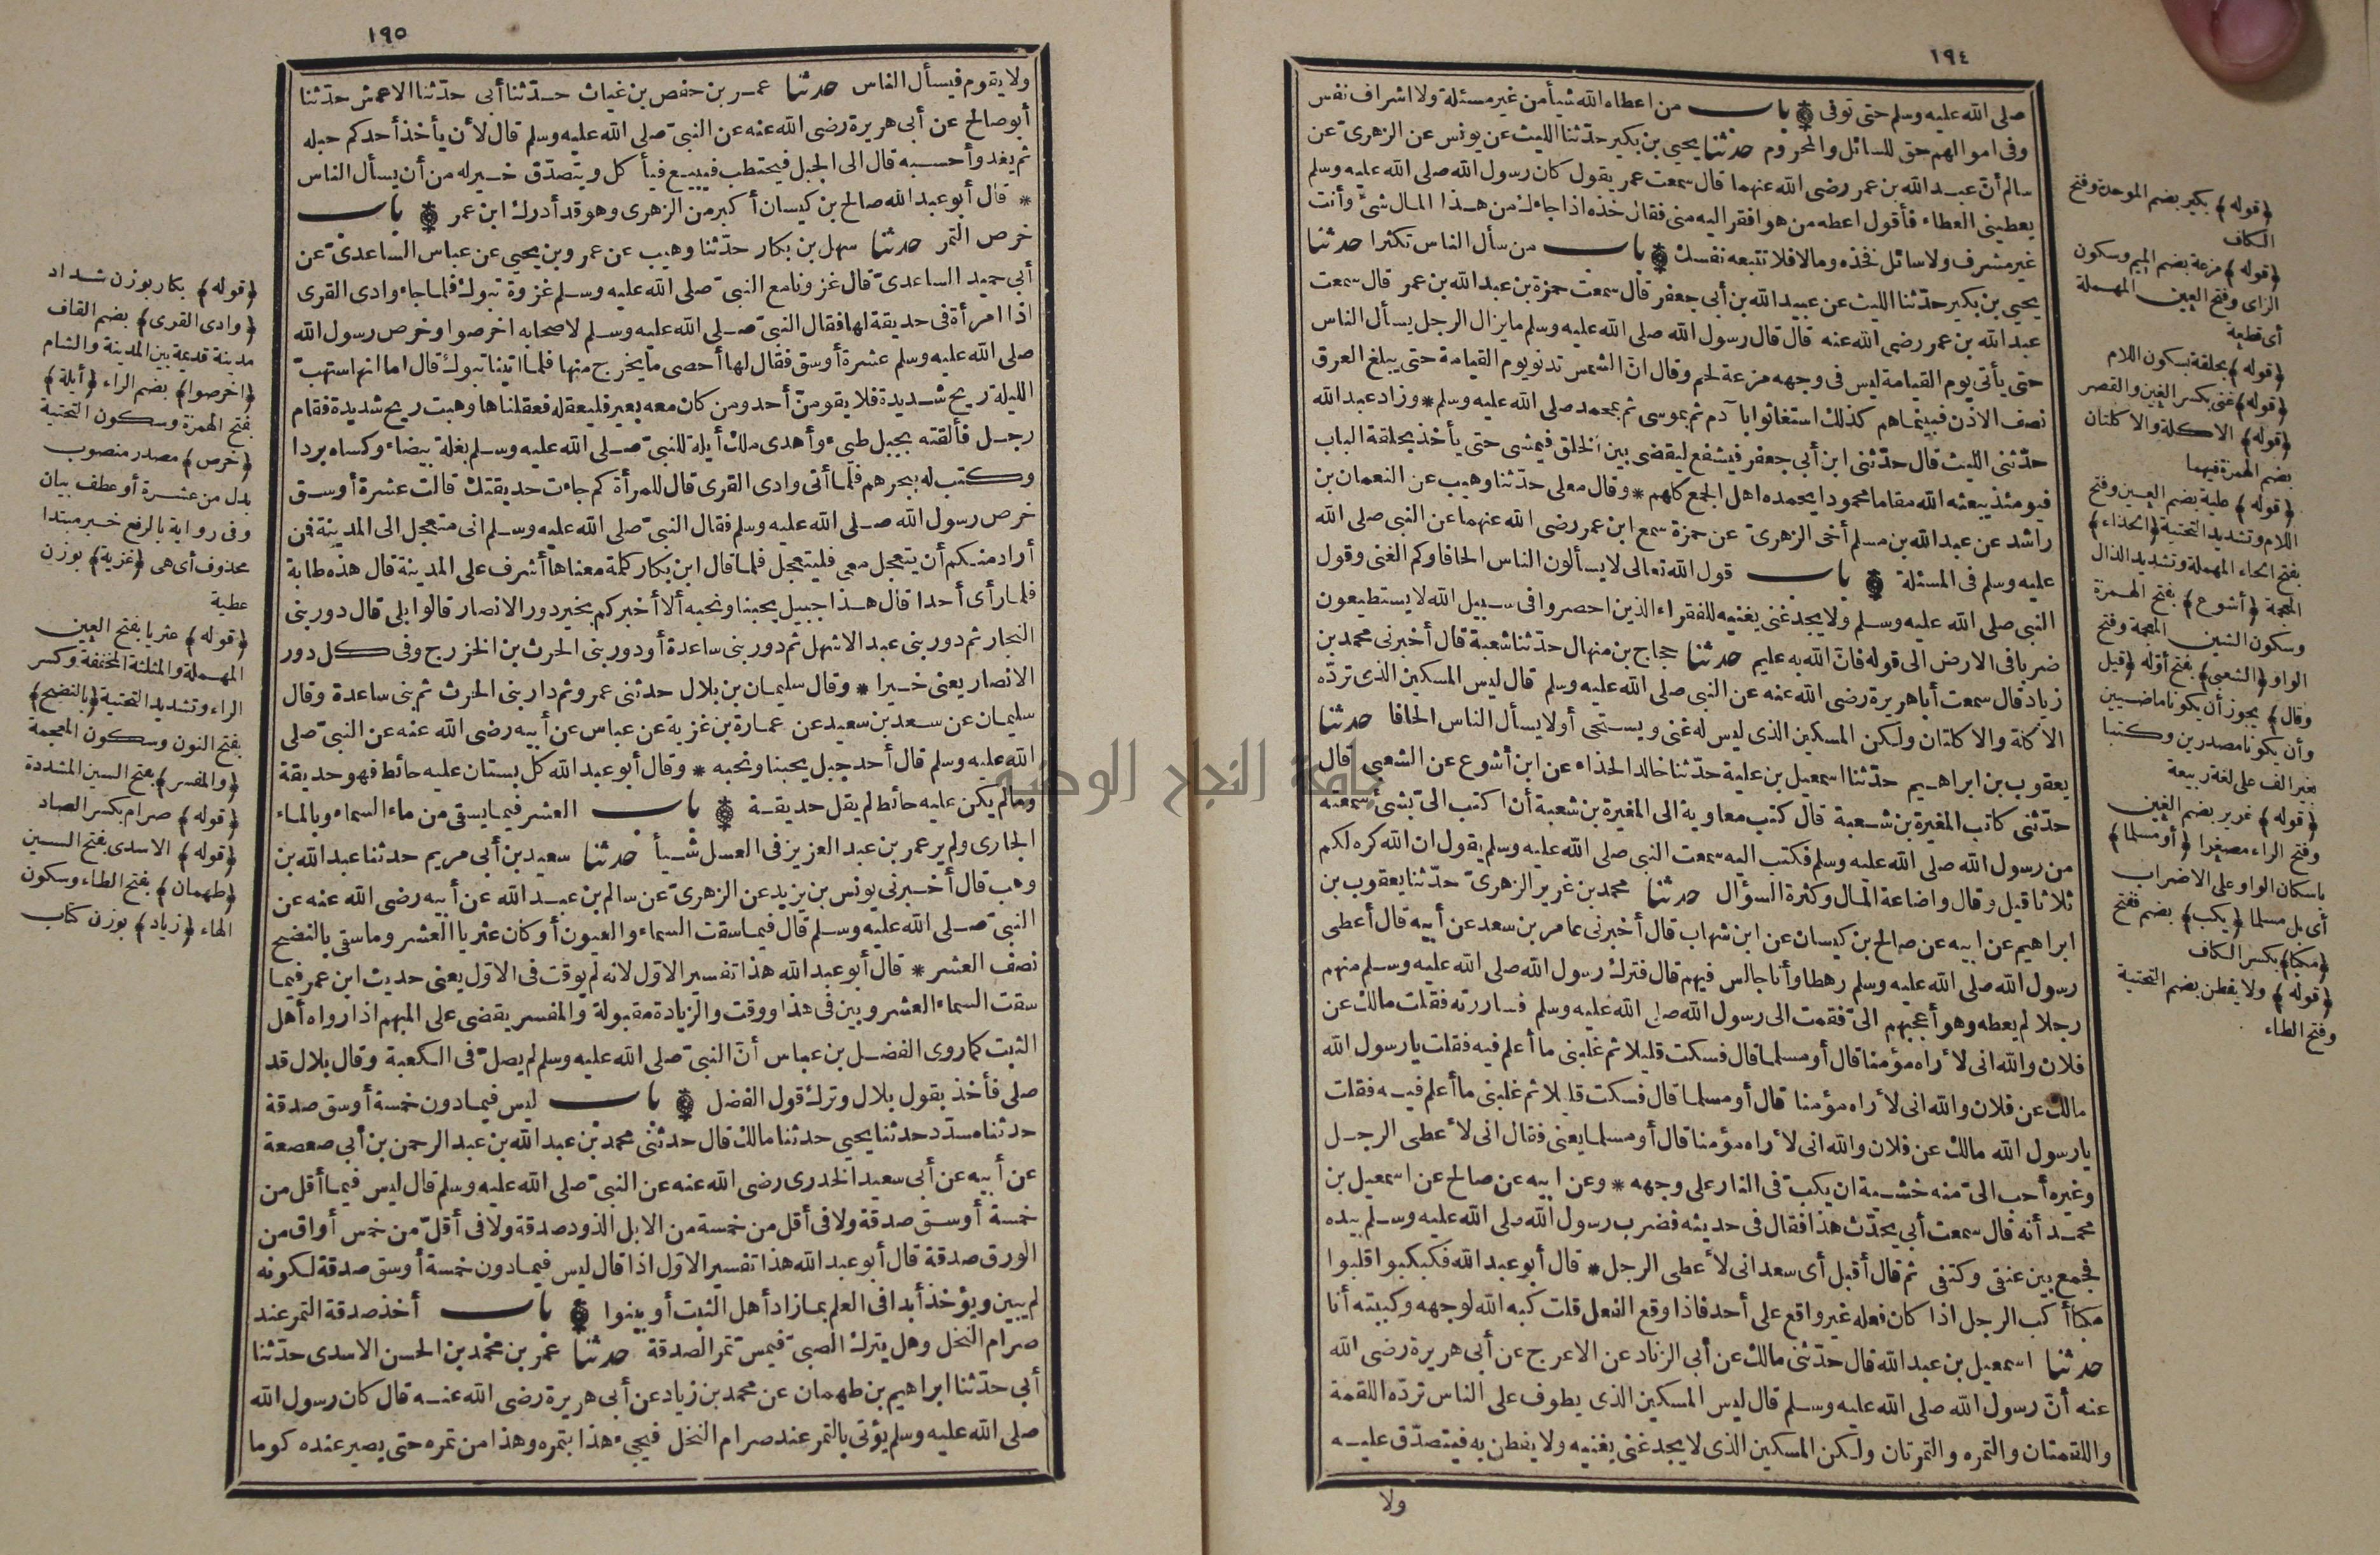 ١٩٤
صلى الله عليه وسلم حتى توفى باب من اعطاه الله شيأ من غير مسئلة ولا اشراف نفس
وفى اموالهم حق للسائل والمحروم حدثنا يحيى بن بكير حدّثنا الليث عن يونس عن الزهرىّ عن
سالم أنّ عبد الله بن عمر رضى الله عنهما قال سمعت عمر يقول كان رسول الله صلى الله عليه وسلم
يعطينى العطاء فأقول اعطه من هو افقر اليه منى فقال خذه اذا جاءك من هذا المال شئ وأنت
غير مشرف ولا سائل فخذه ومالا فلا تتبعه نفسك باب من سأل الناس تكثرا حدثنا
يحيى بن بكير حدّثنا الليث عن عبيد الله بن أبى جعفر قال سمعت حمزة بن عبد الله بن عمر قال سمعت
عبد الله بن عمر رضى الله عنه قال قال رسول الله صلى الله عليه وسلم ما يزال الرجل يسأل الناس
حتى يأتى يوم القيامة ليس فى وجهه مزعة لحم وقال انّ الشمس تدنو يوم القيامة حتى يبلغ العرق
نصف الاذن فبينماهم كذلك استغاثوا با آدم ثم بموسى ثم بمحمد صلى الله عليه وسلم * وزاد عبد الله
حدّثنى الليث قال حدّثنى ابن أبى جعفر فيشفع ليقضى بين الخلق فيمشى حتى يأخذ بحلقة الباب
فيومئذ يبعثه الله مقاما محمودا يحمده اهل الجمع كلهم * وقال معلى حدّثنا وهيب عن النعمان بن
راشد عن عبد الله بن مسلم أخى الزهرىّ عن حمزة سمع ابن عمر رضى الله عنهما عن النبى صلى الله
عليه وسلم فى المسئلة باب قول الله تعالى لا يسألون الناس الحافا وكم الغنى وقول
النبى صلى الله عليه وسلم ولا يجد غنى يغنيه للفقراء الذين احصروا فى سبيل الله لا يستطيعون
ضربا فى الارض الى قوله فانّ الله به عليم حدثنا حجاج بن منهال حدّثنا شعبة قال أخبرنى محمد بن
زياد قال سمعت أبا هريرة رضى الله عنه عن النبى صلى الله عليه وسلم قال ليس المسكين الذى تردّه
الاكلة والاكلتان ولكن المسكين الذى ليس له غنى ويستحى أولا يسأل الناس الحافا حدثنا
يعقوب بن ابراهيم حدّثنا اسمعيل بن علية حدّثنا خالد الحذاء عن ابن أشوع عن الشعبى قال
حدّثنى كاتب المغيرة بن شعبة قال كتب معاوية الى المغيرة بن شعبة أن اكتب الىّ بشئ سمعته
من رسول الله صلى الله عليه وسلم فكتب اليه سمعت النبى صلى الله عليه وسلم يقول ان الله كره لكم
ثلاثا قيل وقال واضاعة المال وكثرة السؤال حدثنا محمد بن غرير الزهرىّ حدّثنا يعقوب بن
ابراهيم عن ابيه عن صالح بن كيسان عن ابن شهاب قال أخبرنى عامر بن سعد عن أبيه قال أعطى
رسول الله صلى الله عليه وسلم رهطا وأنا جالس فيهم قال فترك رسول الله صلى الله عليه وسلم منهم
رجلا لم يعطه وهو أعجبهم الىّ فقمت الى رسول الله صلى الله عليه وسلم فساررته فقلت مالك عن
فلان والله انى لأراه مؤمنا قال أو مسلما قال فسكت قليلا ثم غلبنى ما أعلم فيه فقلت يارسول الله
مالك عن فلان والله انى لأراه مؤمنا قال أو مسلما قال فسكت قليلا ثم غلبنى ما أعلم فيه فقلت
يارسول الله مالك عن فلان والله انى لأراه مؤمنا قال أو مسلما يعنى فقال انى لأعطى الرجل
وغيره أحب الىّ منه خشية ان يكبّ فى النار على وجهه * وعن ابيه عن صالح عن اسمعيل بن
محمد أنه قال سمعت أبى يحدّث هذا فقال فى حديثه فضرب رسول الله صلى الله عليه وسلم بيده
فجمع بين عنقى وكتفى ثم قال أقبل أى سعد انى لأعطى الرجل * قال أبو عبد الله فكبكبوا اقلبوا
مكبا أكب الرجل اذا كان فعله غير واقع على أحد فاذا وقع الفعل قلت كبه الله لوجهه وكببته أنا
حدثنا اسمعيل بن عبد الله قال حدّثنى مالك عن أبى الزناد عن الاعرج عن أبى هريرة رضى الله
عنه أنّ رسول الله صلى الله عليه وسلم قال ليس المسكين الذى يطوف على الناس تردّه اللقمة
واللقمتان والتمره والتمرتان ولكن المسكين الذى لا يجد غنى يغنيه ولا يفطن به فيتصدّق عليه
ولا
﴿قوله﴾ بكير بضم الموحدة وفتح
الكاف
﴿قوله﴾ مزعة بضم الميم وسكون
الزاى وفتح العين المهملة
أى قطعة
﴿قوله﴾ بحلقة بسكون اللام
﴿قوله﴾ غنى بكسر الغين والقصر
﴿قوله﴾ الاكلة والاكلتان
بضم الهمزة فيهما
﴿قوله﴾ علية بضم العين وفتح
اللام وتشديد التحتية ﴿الحذاء﴾
بفتح الحاء المهملة وتشديد الذال
المعجمة ﴿أشوع﴾ بفتح الهمزة
وسكون الشين المعجمة وفتح
الواو ﴿الشعبى﴾ بفتح أوّله ﴿قيل
وقال﴾ يجوز أن يكونا ماضيين
وأن يكونا مصدرين وكتبا
بغير الف على لغة ربيعة
﴿قوله﴾ غرير بضم الغين
وفتح الراء مصغرا ﴿أو مسلما﴾
باسكان الواو على الاضراب
أى بل مسلما ﴿يكب﴾ بضم ففتح
﴿مكبا﴾ بكسر الكاف
﴿قوله﴾ ولا يفطن بضم التحتية
وفتح الطاء
١٩٥
ولا يقوم فيسأل الناس حدثنا عمر بن حفص بن غياث حدّثنا أبى حدّثنا الاعمش حدّثنا
أبو صالح عن أبى هريرة رضى الله عنه عن النبىّ صلى الله عليه وسلم قال لأن يأخذ أحدكم حبله
ثم يغدو أحسبه قال الى الجبل فيحتطب فيبيع فيأكل ويتصدّق خير له من أن يسأل الناس
* قال أبو عبد الله صالح بن كيسان أكبر من الزهرى وهو قد أدرك ابن عمر باب
خرص التمر حدثنا سهل بن بكار حدّثنا وهيب عن عمرو بن يحيى عن عباس الساعدىّ عن
أبى حميد الساعدىّ قال غزونا مع النبىّ صلى الله عليه وسلم غزوة تبوك فلما جاء وادى القرى
اذا امرأة فى حديقة لها فقال النبىّ صلى الله عليه وسلم لاصحابه اخرصوا وخرص رسول الله
صلى الله عليه وسلم عشرة أوسق فقال لها أحصى ما يخرج منها فلما اتينا تبوك قال اما انها ستهبّ
الليلة ريح شديدة فلا يقومنّ أحد ومن كان معه بعير فليعقله فعقلناها وهبت ريح شديدة فقام
رجل فألقته بجبل طيئ وأهدى ملك أيلة للنبىّ صلى الله عليه وسلم بغلة بيضاء وكساه بردا
وكتب له ببحرهم فلما أتى وادى القرى قال للمرأة كم جاءت حديقتك قالت عشرة أوسق
خرص رسول الله صلى الله عليه وسلم فقال النبىّ صلى الله عليه وسلم انى متعجل الى المدينة فمن
أراد منكم أن يتعجل معى فليتعجل فلما قال ابن بكار كلمة معناها أشرف على المدينة قال هذه طابة
فلما رأى أحدا قال هذا جبيل يحبنا ونحبه ألا أخبركم بخير دور الانصار قالوا بلى قال دور بنى
النجار ثم دور بنى عبد الاشهل ثم دور بنى ساعدة أو دور بنى الحرث بن الخزرج وفى كل دور
الانصار يعنى خيرا * وقال سليمان بن بلال حدثنى عمرو ثم دار بنى الحرث ثم بنى ساعدة وقال
سليمان عن سعد بن سعيد عن عمارة بن غزية عن عباس عن أبيه رضى الله عنه عن النبىّ صلى
الله عليه وسلم قال أحد جبل يحبنا ونحبه * وقال أبو عبد الله كل بستان عليه حائط فهو حديقة
وما لم يكن عليه حائط لم يقل حديقة باب العشر فيما يسقى من ماء السماء وبالماء
الجارى ولم ير عمر بن عبد العزيز فى العسل شيأ حدثنا سعيد بن أبى مريم حدثنا عبد الله بن
وهب قال أخبرنى يونس بن يزيد عن الزهرىّ عن سالم بن عبد الله عن أبيه رضى الله عنه عن
النبىّ صلى الله عليه وسلم قال فيما سقت السماء والعيون أو كان عثريا العشر وما سقى بالنضح
نصف العشر * قال أبو عبد الله هذا تفسير الاوّل لانه لم يوقت فى الاوّل يعنى حديث ابن عمر فيما
سقت السماء العشر وبين فى هذا ووقت والزيادة مقبولة والمفسر يقضى على المبهم اذا رواه أهل
الثبت كما روى الفضل بن عباس أنّ النبىّ صلى الله عليه وسلم لم يصلّ فى الكعبة وقال بلال قد
صلى فأخذ بقول بلال وترك قول الفضل باب ليس فيما دون خمسة أوسق صدقة
حدثنا مسدّد حدثنا يحيى حدثنا مالك قال حدثنى محمد بن عبد الله بن عبد الرحمن بن أبى صعصعة
عن أبيه عن أبى سعيد الخدرى رضى الله عنه عن النبىّ صلى الله عليه وسلم قال ليس فيما أقل من
خمسة أوسق صدقة ولا فى أقل من خمسة من الابل الذود صدقة ولا فى أقلّ من خمس أواق من
الورق صدقة قال أبو عبد الله هذا تفسير الاوّل اذا قال ليس فيما دون خمسة أوسق صدقة لكونه
لم يبين ويؤخذ أبدا فى العلم بما زاد أهل الثبت أو بينوا باب أخذ صدقة التمر عند
صرام النخل وهل يترك الصبىّ فيمس تمر الصدقة حدثنا عمر بن محمد بن الحسن الاسدى حدّثنا
أبى حدّثنا ابراهيم بن طهمان عن محمد بن زياد عن أبى هريرة رضى الله عنه قال كان رسول الله
صلى الله عليه وسلم يؤتى بالتمر عند صرام النخل فيجىء هذا بتمره وهذا من تمره حتى يصير عنده كوما
﴿قوله﴾ بكار بوزن شداد
﴿وادى القرى﴾ بضم القاف
مدينة قديمة بين المدينة والشام
﴿اخرصوا﴾ بضم الراء ﴿أيلة﴾
بفتح الهمزة وسكون التحتية
﴿خرص﴾ مصدر منصوب
بدل من عشرة أو عطف بيان
وفى رواية بالرفع خبر مبتدا
محذوف أى هى ﴿غزية﴾ بوزن
عطية
﴿قوله﴾ عثريا بفتح العين
المهملة والمثلثة المخففة وكسر
الراء وتشديد التحتية ﴿بالنضح﴾
بفتح النون وسكون المعجمة
﴿والمفسر﴾ بفتح السين المشددة
﴿قوله﴾ صرام بكسر الصاد
﴿قوله﴾ الاسدى بفتح السين
﴿طهمان﴾ بفتح الطاء وسكون
الهاء ﴿زياد﴾ بوزن كتاب
جامعة النجاح الوطنية